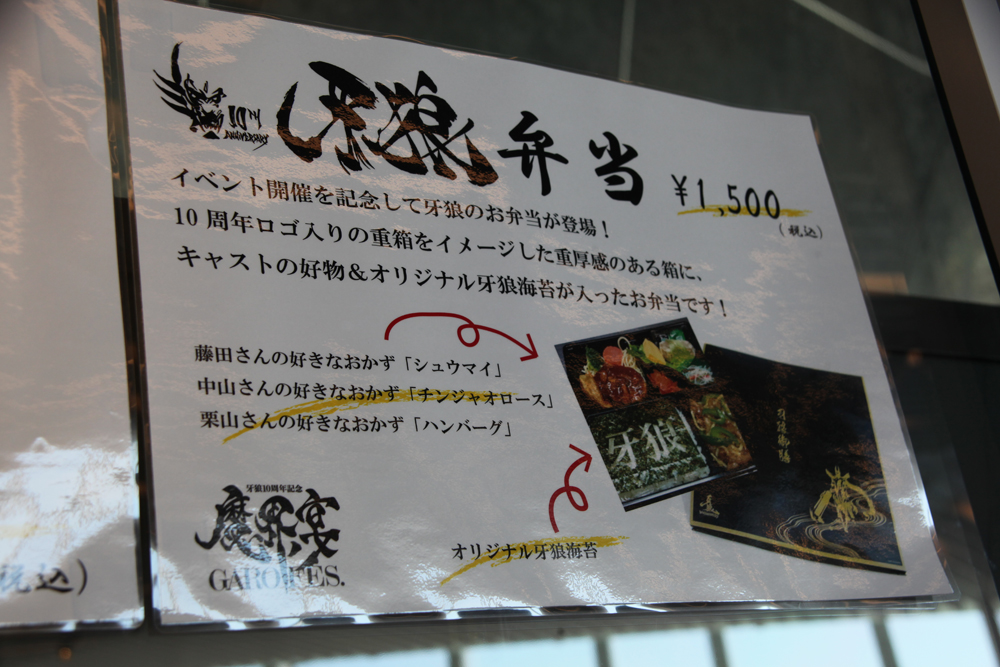 10TH
ANNIVERSARY
牙狼弁当
¥1,500
(税込)
イベント開催を記念して牙狼のお弁当が登場！
10周年ロゴ入りの重箱をイメージした重厚感のある箱に、
キャストの好物＆オリジナル牙狼海苔が入ったお弁当です！
藤田さんの好きなおかず「シュウマイ」
中山さんの好きなおかず「チンジャオロース」
栗山さんの好きなおかず「ハンバーグ」
牙狼
牙狼10周年記念
魔界ノ宴
GARO FES.
オリジナル牙狼海苔
税込)